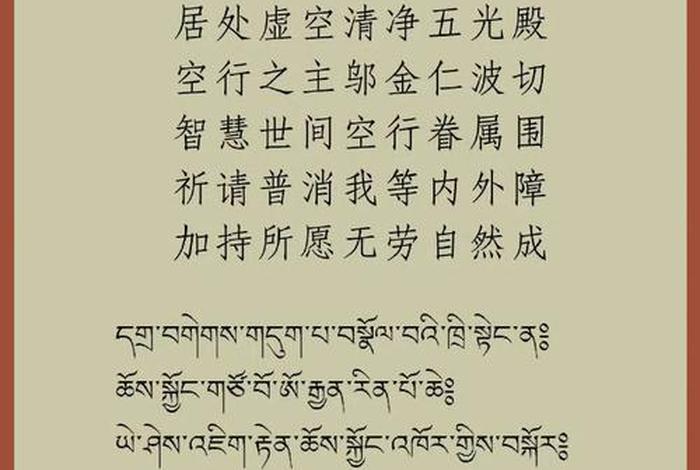 居处虚空清净五光殿
空行之主邬金仁波切
智慧世间空行眷属围
祈请普消我等内外障
加持所愿无劳自然成
དགྲ་བགེགས་གདུག་པ་བསྣོལ་བའི་ཁྲི་སྟེང་ན༔
ཆོས་སྐྱོང་གཙོ་བོ་ཨོ་རྒྱན་རིན་པོ་ཆེ༔
ཡེ་ཤེས་འཇིག་རྟེན་ཆོས་སྐྱོང་འཁོར་གྱིས་བསྐོར༔